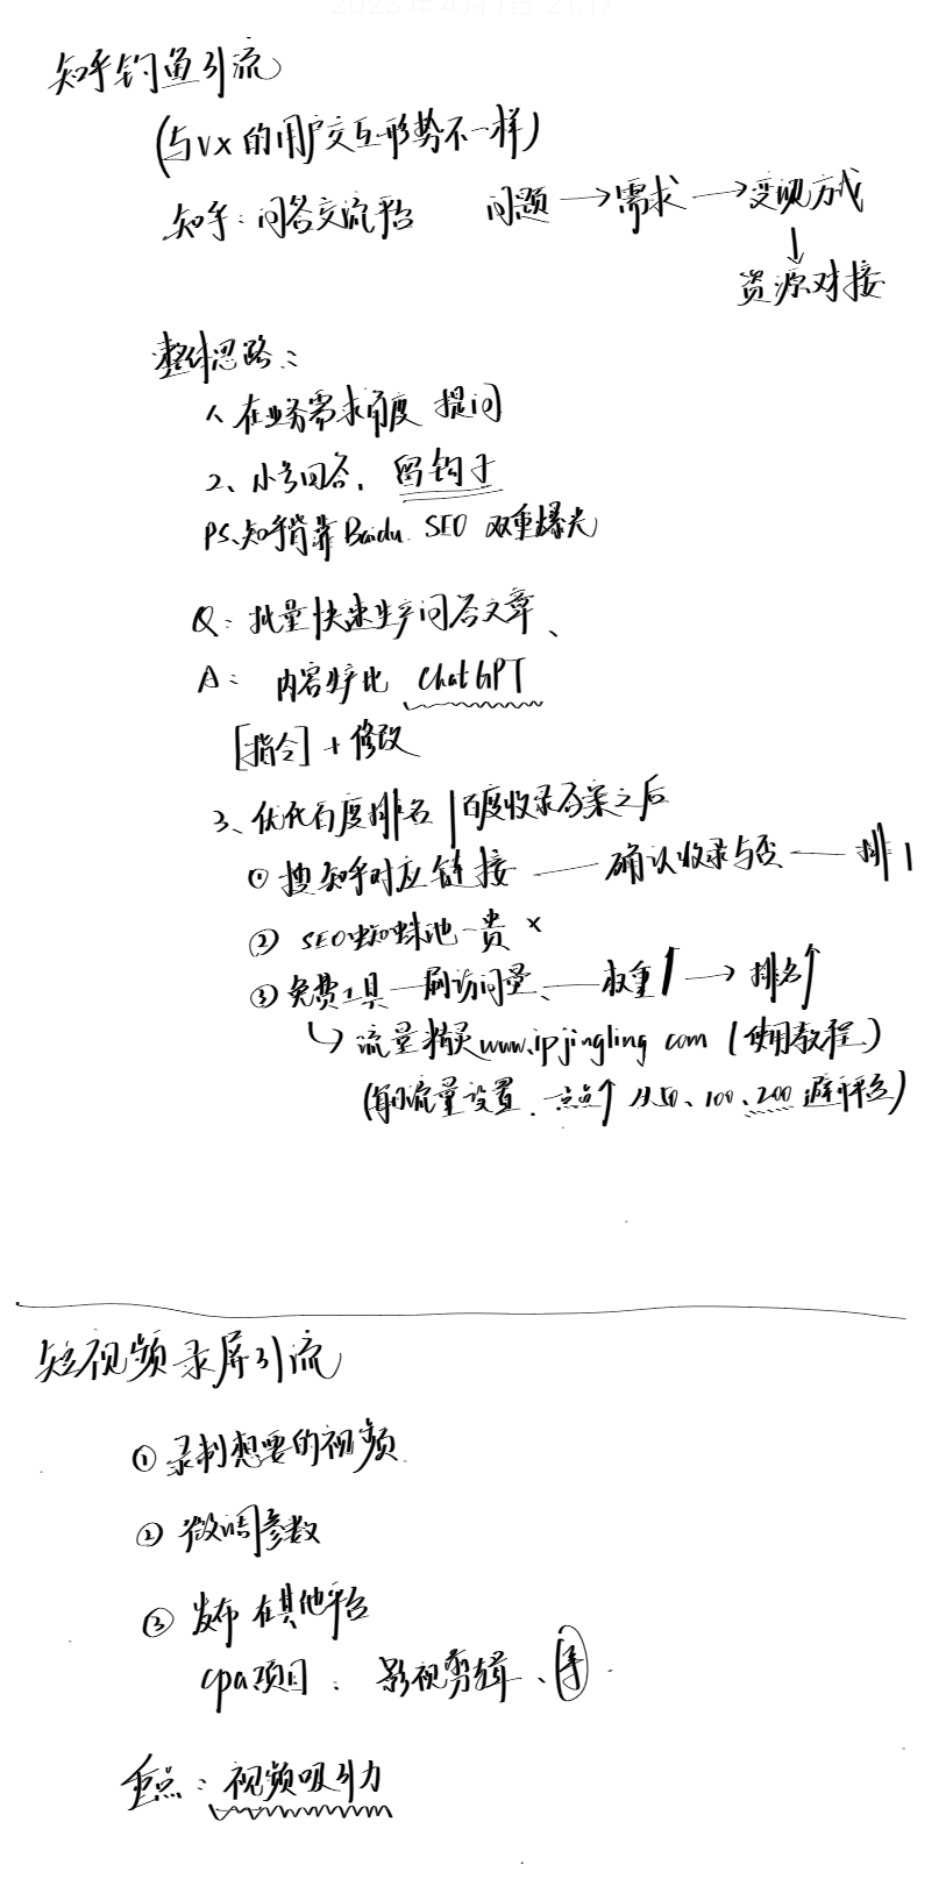 2023年4月1日 21:17
知乎钓鱼引流
(与vx的用户交互形势不一样)
知乎:问答交流平台 问题→需求→变现方式
↓
资源对接
整体思路:
1、在业务需求角度 提问
2、小号回答,留钩子
PS、知乎背靠Baidu. SEO 双重曝光
Q:批量快速生产问答文章、
A: 内容生产比 ChatGPT
[指令]+修改
3、优化百度排名|百度收录答案之后
① 搜知乎对应链接 — 确认收录与否 — 排1
② SEO蜘蛛池-贵 ×
③ 免费工具—刷访问量、—权重↑→排名↑
↳ 流量精灵www.ipjingling com (使用教程)
流量设置. 一点点↑ 从50、100、200
短视频录屏引流
① 录制想要的视频.
② 微调参数
③ 发布 在其他平台
cpa项目: 影视剪辑、
重点:视频吸引力